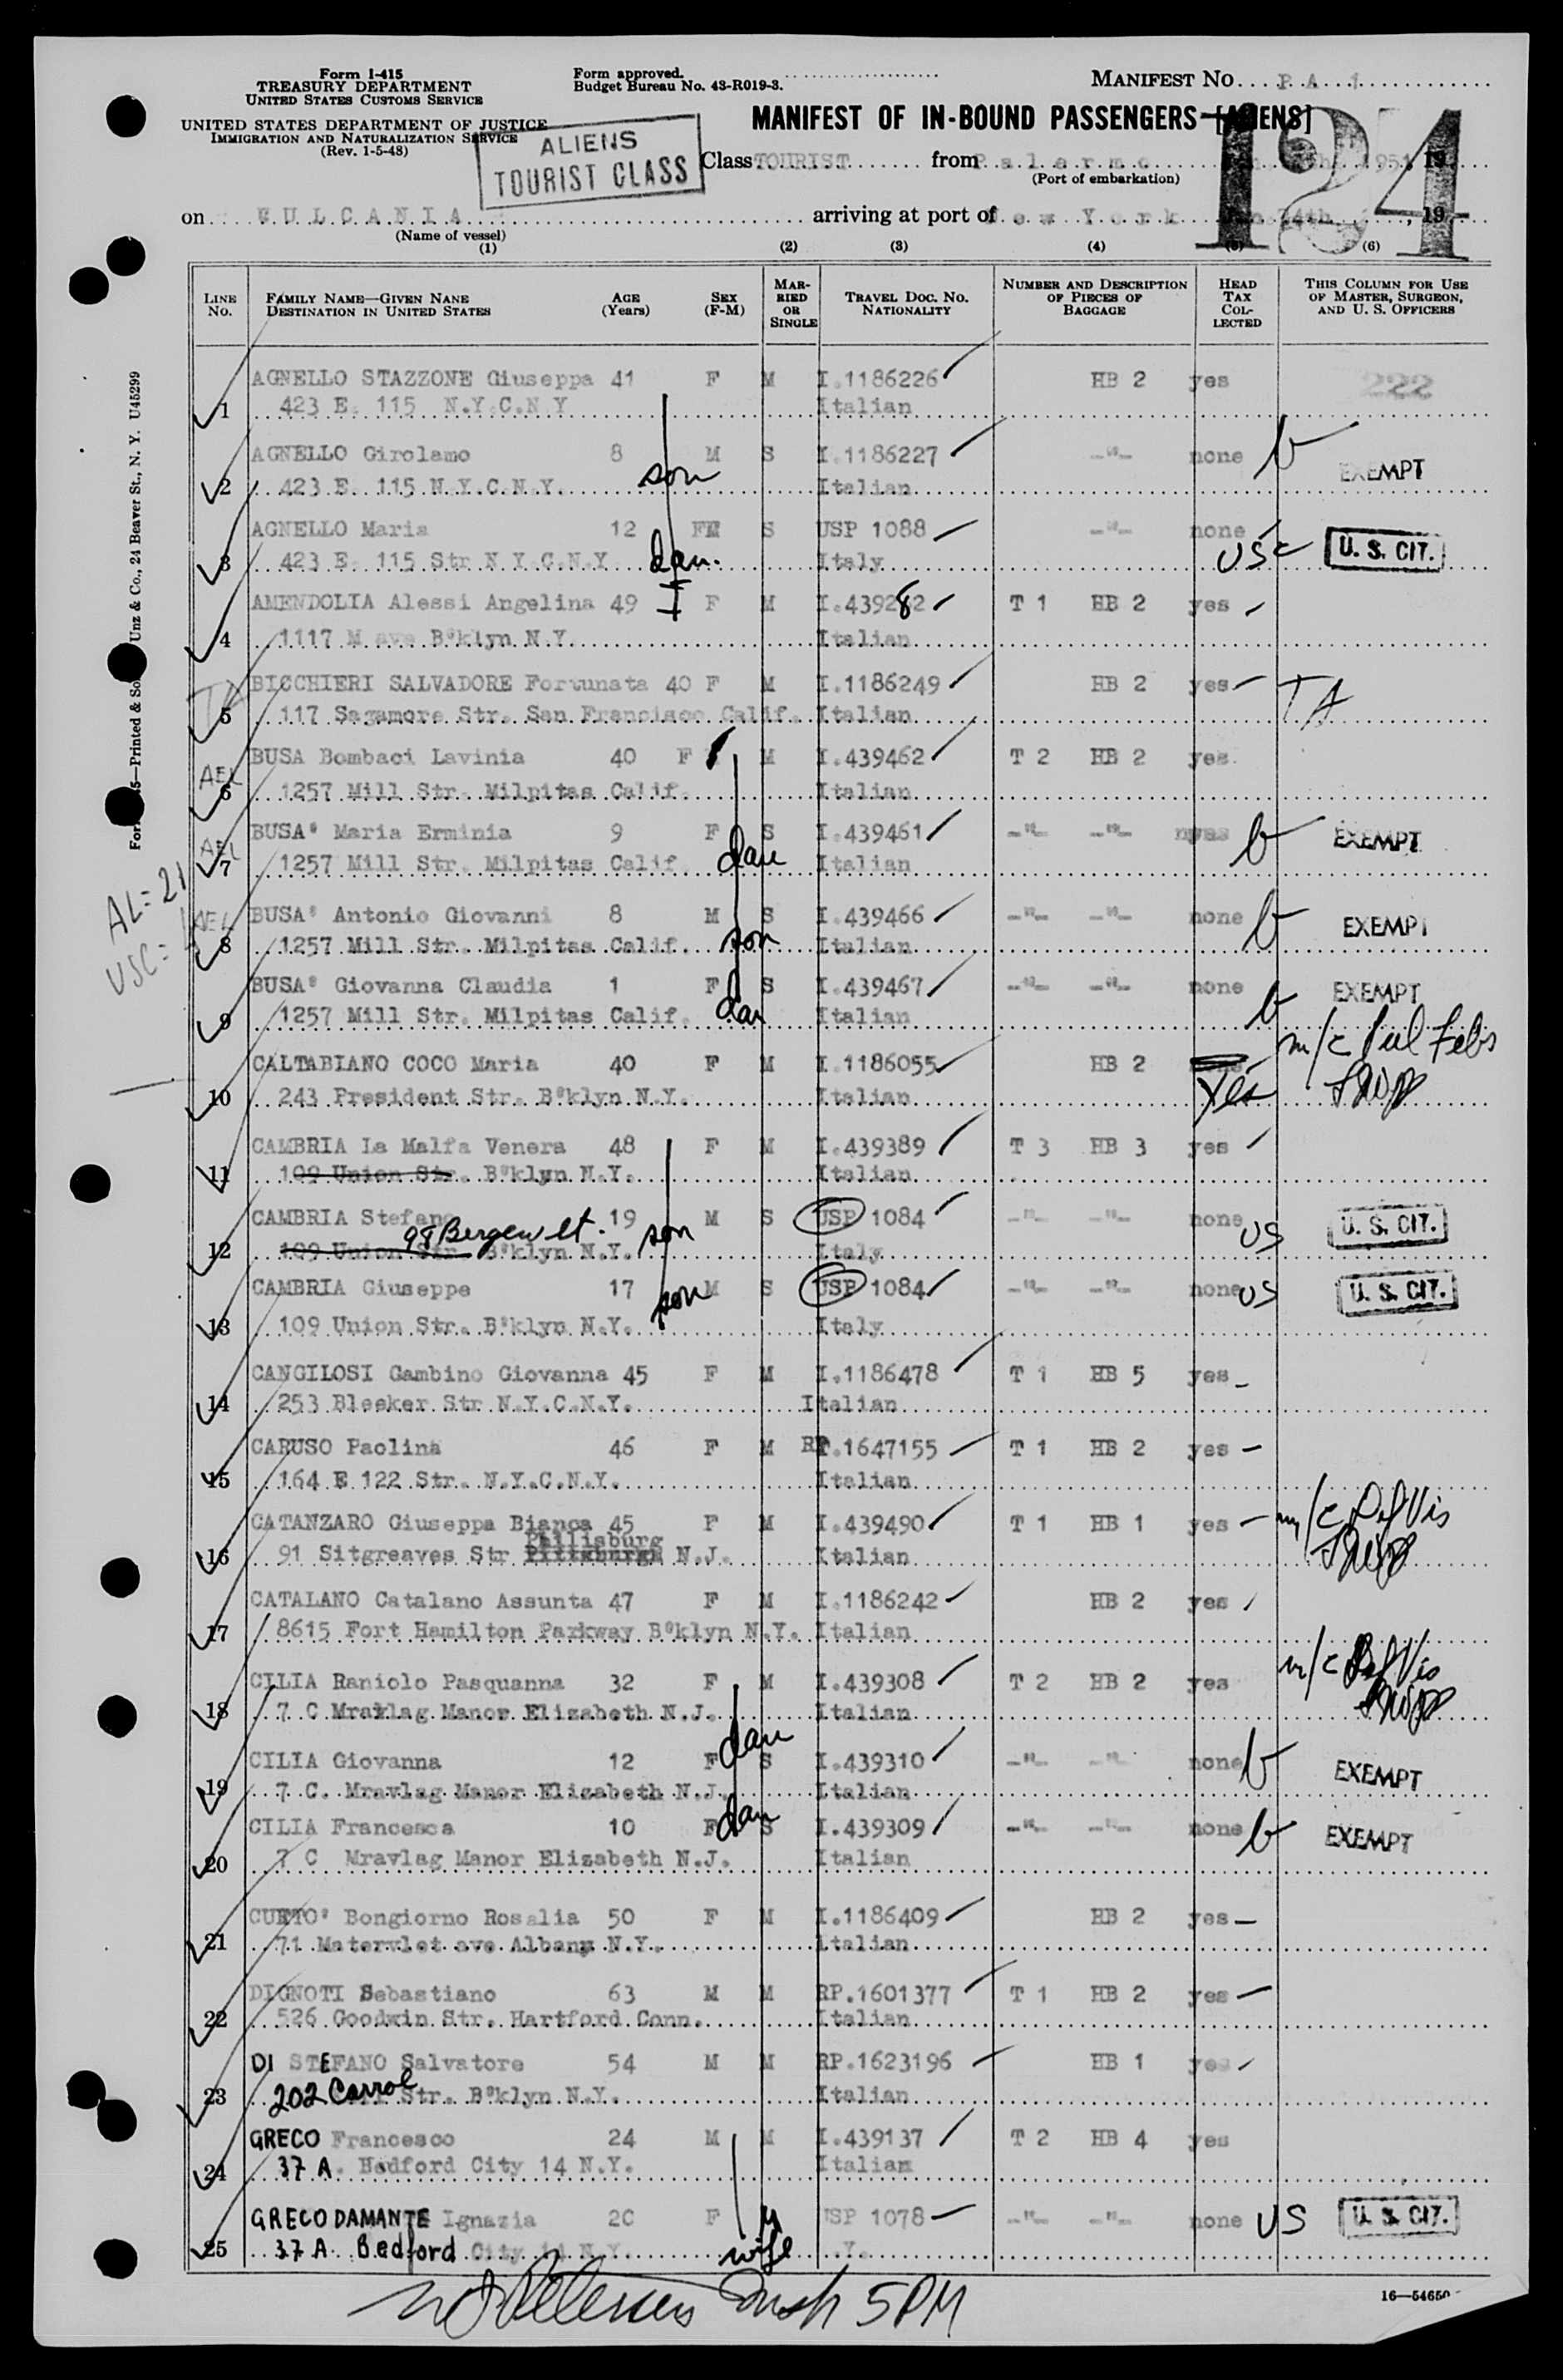 Form I-415
TREASURY DEPARTMENT
UNITED STATES CUSTOMS SERVICE
UNITED STATES DEPARTMENT OF JUSTICE
IMMIGRATION AND NATURALIZATION SERVICE
(Rev. 1-5-48)
Form approved.
Budget Bureau No. 43-R019-3.
MANIFEST NO. P A 1
MANIFEST OF IN-BOUND PASSENGERS [ALIENS]
124
ALIENS
TOURIST CLASS
Class TOURIST from Palermo 1951 19
(Port of embarkation)
on VULCANIA arriving at port of ew York 14th, 19
(Name of vessel)
(1) (2) (3) (4) (5) (6)
LINE No. FAMILY NAME—GIVEN NANE DESTINATION IN UNITED STATES AGE (Years) SEX (F-M) MARRIED OR SINGLE TRAVEL DOC. NO. NATIONALITY NUMBER AND DESCRIPTION OF PIECES OF BAGGAGE HEAD TAX COLLECTED THIS COLUMN FOR USE OF MASTER, SURGEON, AND U. S. OFFICERS
AGNELLO STAZZONE Giuseppa 41 F M I.1186226 HB 2 yes 222
1 423 E. 115 N.Y.C.N.Y Italian
AGNELLO Girolamo 8 M S I.1186227 -"- none EXEMPT
2 423 E. 115 N.Y.C.N.Y. son Italian
AGNELLO Maria 12 FM S USP 1088 -"- none USC U. S. CIT.
3 423 E. 115 Str N.Y.C.N.Y dau. Italy
AMENDOLIA Alessi Angelina 49 F M I.439282 T 1 HB 2 yes
4 1117 M ave B°klyn N.Y. Italian
BICCHIERI SALVADORE Fortunata 40 F M I.1186249 HB 2 yes TA
TA 5 117 Sagamore Str. San Francisco Calif. Italian
BUSA Bombaci Lavinia 40 F M I.439462 T 2 HB 2 yes
AEL 6 1257 Mill Str. Milpitas Calif. Italian
BUSA° Maria Erminia 9 F S I.439461 -"- -"- EXEMPT
AEL 7 1257 Mill Str. Milpitas Calif. dau Italian
AL=21
USC=
BUSA° Antonio Giovanni 8 M S I.439466 -"- -"- none EXEMPT
AEL 8 1257 Mill Str. Milpitas Calif. son Italian
BUSA° Giovanna Claudia 1 F S I.439467 -"- -"- none EXEMPT
9 1257 Mill Str. Milpitas Calif. dau Italian
CALTABIANO COCO Maria 40 F M I.1186055 HB 2 none m/c Pul
10 243 President Str. B°klyn N.Y. Italian Yes
CAMBRIA La Malfa Venera 48 F M I.439389 T 3 HB 3 yes
11 109 Union Str. B°klyn N.Y. Italian
CAMBRIA Stefano 19 M S USP 1084 -"- -"- none US U. S. CIT.
98 Bergen St.
12 109 Union Str. B°klyn N.Y. son Italy
CAMBRIA Giuseppe 17 M S USP 1084 -"- -"- none US U. S. CIT.
13 109 Union Str. B°klyn N.Y. son Italy
CANGILOSI Gambino Giovanna 45 F M I.1186478 T 1 HB 5 yes
14 253 Bleeker Str N.Y.C.N.Y. Italian
CARUSO Paolina 46 F M RP.1647155 T 1 HB 2 yes
15 164 E 122 Str. N.Y.C.N.Y. Italian
CATANZARO Giuseppa Bianca 45 F M I.439490 T 1 HB 1 yes m/c Def Vis
Phillsburg
16 91 Sitgreaves Str Pittsburgh N.J. Italian
CATALANO Catalano Assunta 47 F M I.1186242 HB 2 yes
17 8615 Fort Hamilton Parkway B°klyn N.Y. Italian
CILIA Raniolo Pasquanna 32 F M I.439308 T 2 HB 2 yes m/c Def Vis
18 7 C Mravlag Manor Elizabeth N.J. Italian
CILIA Giovanna 12 F S I.439310 -"- -"- none EXEMPT
19 7 C. Mravlag Manor Elizabeth N.J. dau Italian
CILIA Francesca 10 F S I.439309 -"- -"- none EXEMPT
20 7 C Mravlag Manor Elizabeth N.J. dau Italian
CUETO° Bongiorno Rosalia 50 F M I.1186409 HB 2 yes
21 71 Matervlet ave Albany N.Y. Italian
DIGNOTI Sebastiano 63 M M RP.1601377 T 1 HB 2 yes
22 526 Goodwin Str. Hartford Conn. Italian
DI STEFANO Salvatore 54 M M RP.1623196 HB 1 yes
23 202 Carrol Str. B°klyn N.Y. Italian
GRECO Francesco 24 M M I.439137 T 2 HB 4 yes
24 37 A. Bedford City 14 N.Y. Italian
GRECO DAMANTE Ignazia 20 F M USP 1078 -"- -"- none US U. S. CIT.
25 37 A. Bedford City 14 N.Y. wife .Y.
5 PM
16—54650
Unz & Co., 24 Beaver St., N. Y. U45299